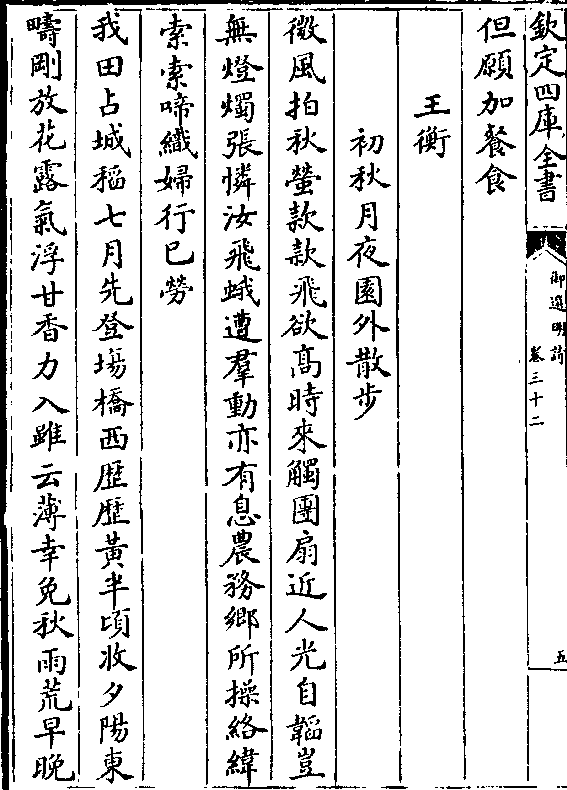 欽定四庫全書
御選明詩
卷三十二
五
但願加餐食
王衡
初秋月夜園外散步
微風拍秋螢款款飛欲高時來觸團扇近人光自韜豈
無燈燭張憐汝飛蛾遭羣動亦有息農務鄉所操絡緯
索索啼織婦行已勞
我田占城稻七月先登塲橋西歴歴黃半頃收夕陽東
疇剛放花露氣浮甘香力入雖云薄幸免秋雨荒早晚